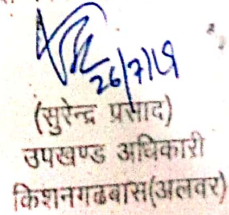 26/7/19
(सुरेन्द्र प्रसाद)
उपखण्ड अधिकारी
किशनगढबास(अलवर)